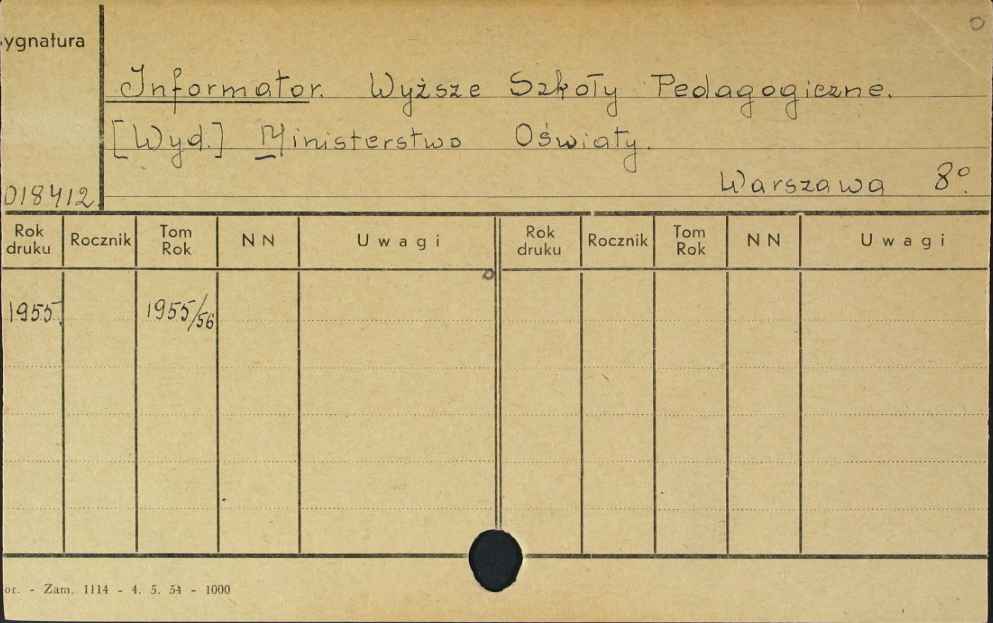 ygnatura
Informator. Wyższe Szkoły Pedagogiczne.
[Wyd.] Ministerstwo Oświaty.
Warszawa 8°.
018412
Rok druku Rocznik Tom Rok NN Uwagi Rok druku Rocznik Tom Rok NN Uwagi
1955. 1955/56
or. - Zam. 1114 - 4. 5. 54 - 1000